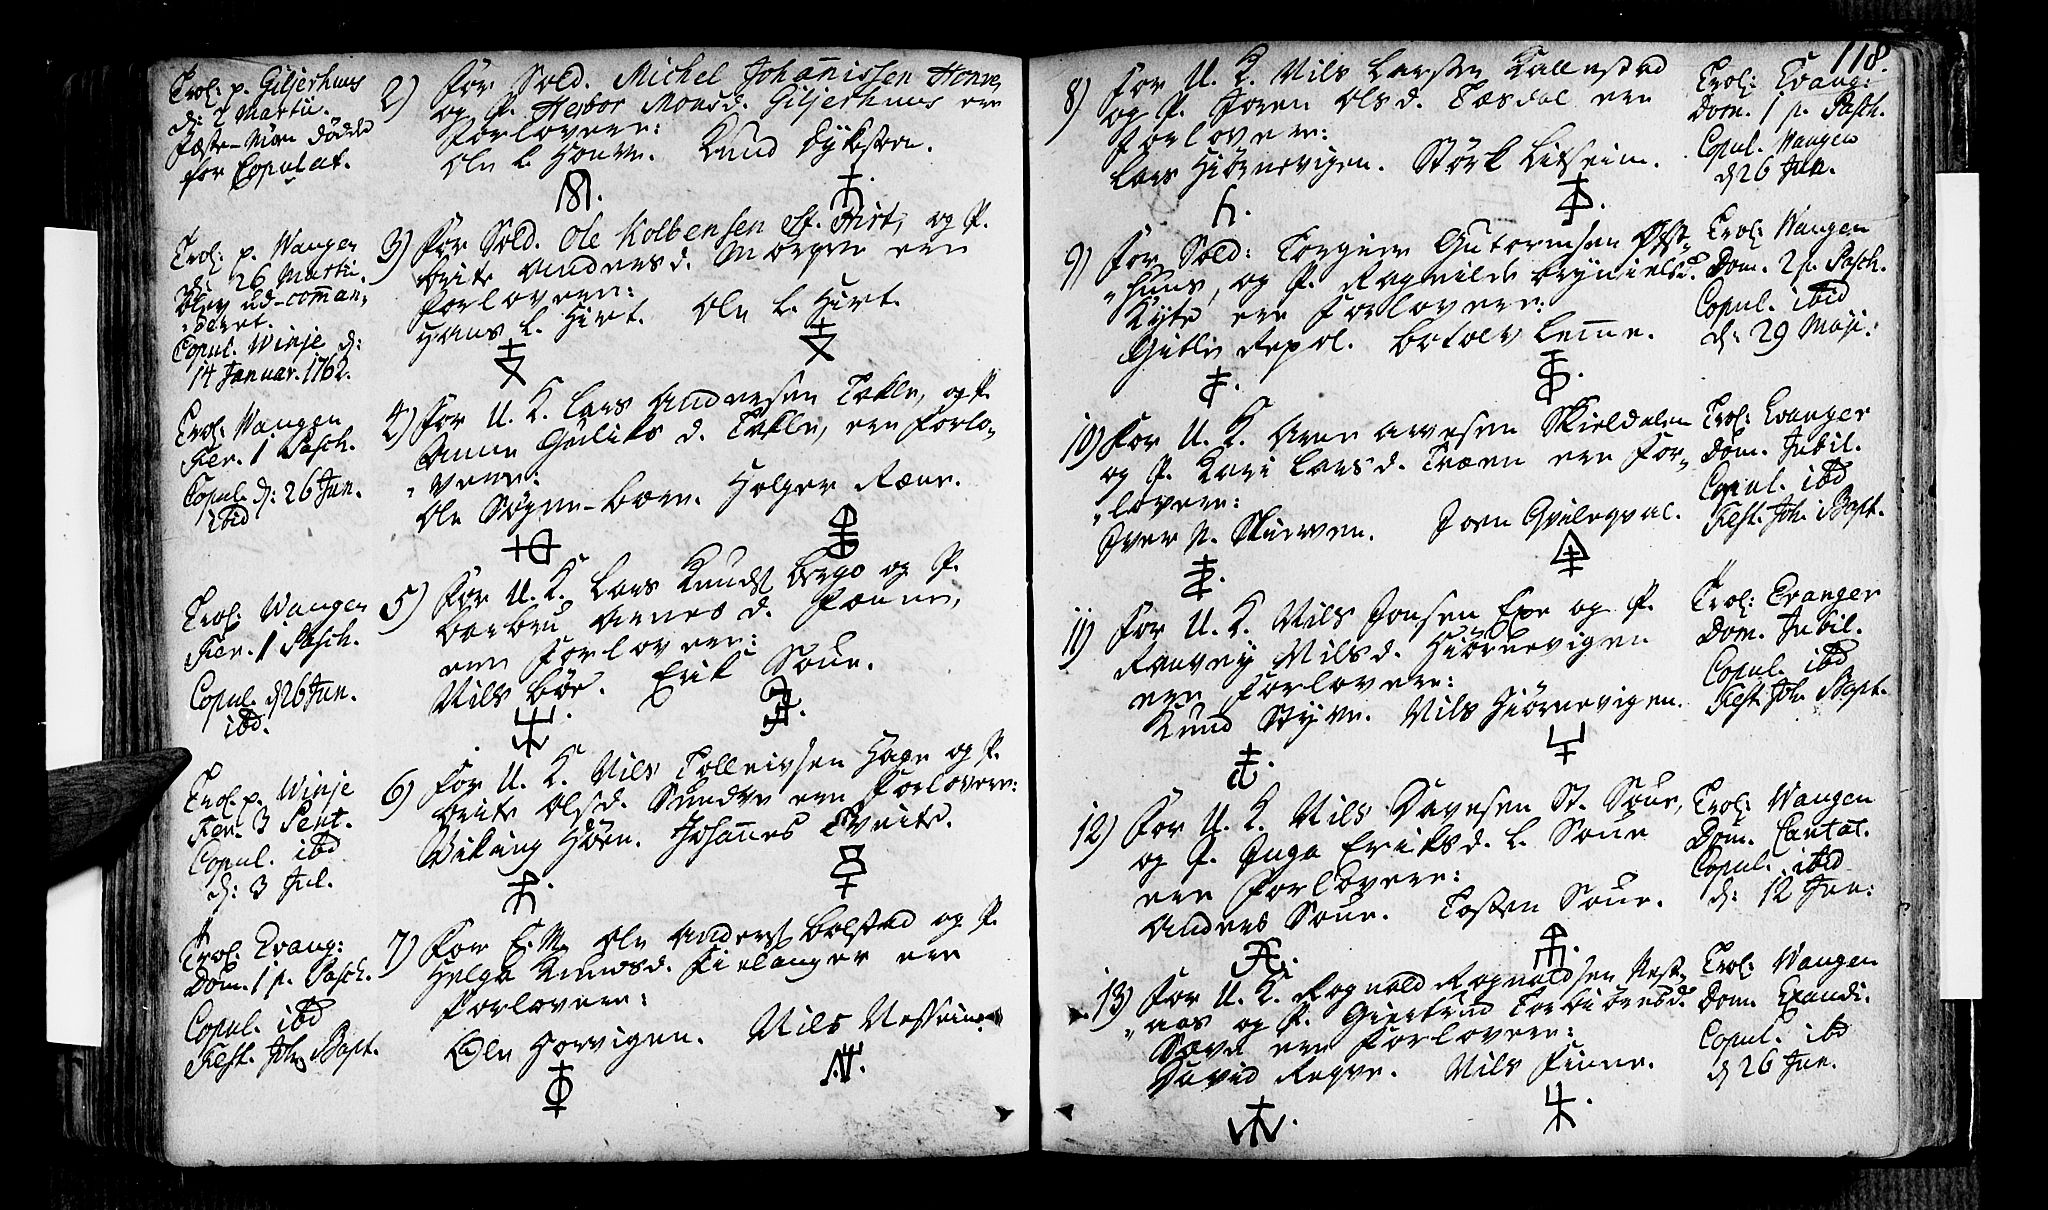 Trol: p. Giljerhuus
d: 2 Martii.
Fæste-Møen dødde
for Copulat.
2) For Sold. Michel Johannissen Honve,
og P. Herbor Monsd. Giljerhuus ere
Forlovere:
Ole l. Honve. Knud Dykesten.
Trol: p. Wangen
d: 26 Martii.
blev ud-comman-
deret.
Copul. Winje d:
14 Januar. 1762.
3) For Sold. Ole Kolbensen St. Hirt, og P.
Brite Andersd. Mørqve ere
Forlovere:
Hans l. Hirt. Ole l. Hirt.
Trol: Wangen
Fer. 1 Pasch.
Copul. d: 26 Jun.
ibid
4) For U. K. Lars Andersen Tekle, og P.
Anne Guliks d. Tekle, ere Forlo-
vere:
Ole Søgne-bæen. Holger Ræne.
Trol: Wangen
Fer. 1 Pasch.
Copul. d 26 Jun.
ibd.
5) For U. K. Lars Knuds. Bergo og P.
Barbru Arnes d. Fenne,
ere Forlovere:
Nils Böe. Erik Soue.
Trol. p. Winje
Fer. 3 Pent.
Copul. ibd
d: 3 Jul.
6) For U. K. Nils Tolleivsen Hage og P.
Brite Olsd. Sundve ere Forlovere:
Viking Höen. Johannes Tveite.
Trol: Evang:
Dom. 1 p. Pasch.
Copul. ibd
Fest. Joh. Bapt.
7) For E. M. Ole Anders. Bolstad og P.
Helga Knudsd. Fielanger ere
Forlovere:
Ole Horvigen. Nils Nesheim.
118.
8) For U. K. Nils Larsen Kallestad
og P. Joren Olsd. Tæsdal ere
Forlovere:
Lars Hiørnevigen. Størk Litheim.
Trol: Evang:
Dom. 1 p. Pasch.
Copul. Wangen
d 26 Jun.
9) For Sold: Torgier Gutormsen Øst-
huus, og P. Ragnilde Brynielsd.
Kyte ere Forlovere:
Gitle Repal. Botolv Lemme.
Trol: Wangen
Dom. 2 p. Pasch.
Copul. ibid
d: 29 Maji.
10) For U. K. Arne Arnesen Skieldalen
og P. Kari Larsd. Træen ere For-
lovere:
Iver N. Skierven. Joen Gvileqval.
Trol: Evanger
Dom. Jubil.
Copul. ibd
Fest. Joh. Bapt.
11) For U. K. Nils Jonsen Exe og P.
Ranvey Nilsd. Hiörnevigen
ere Forlovere:
Knud Styve. Nils Hiörnevigen.
Trol: Evanger
Dom. Jubil.
Copul. ibd
Fest. Joh. Bapt.
12) For U. K. Nils Davesen St. Soue,
og P. Inga Eriksd. l. Soue
ere Forlovere:
Anders Soue. Tosten Soue.
Trol: Wangen
Dom. Cantat.
Copul. ibid
d: 12 Jun:
13) For U. K. Rognald Rognaldsen Nest-
aas og P. Giertrud Torbiörnsd.
Sæve ere Forlovere:
David Reqve. Nils Finne.
Trol: Wangen
Dom. Exaudi.
Copul. ibd
d 26 Jun.